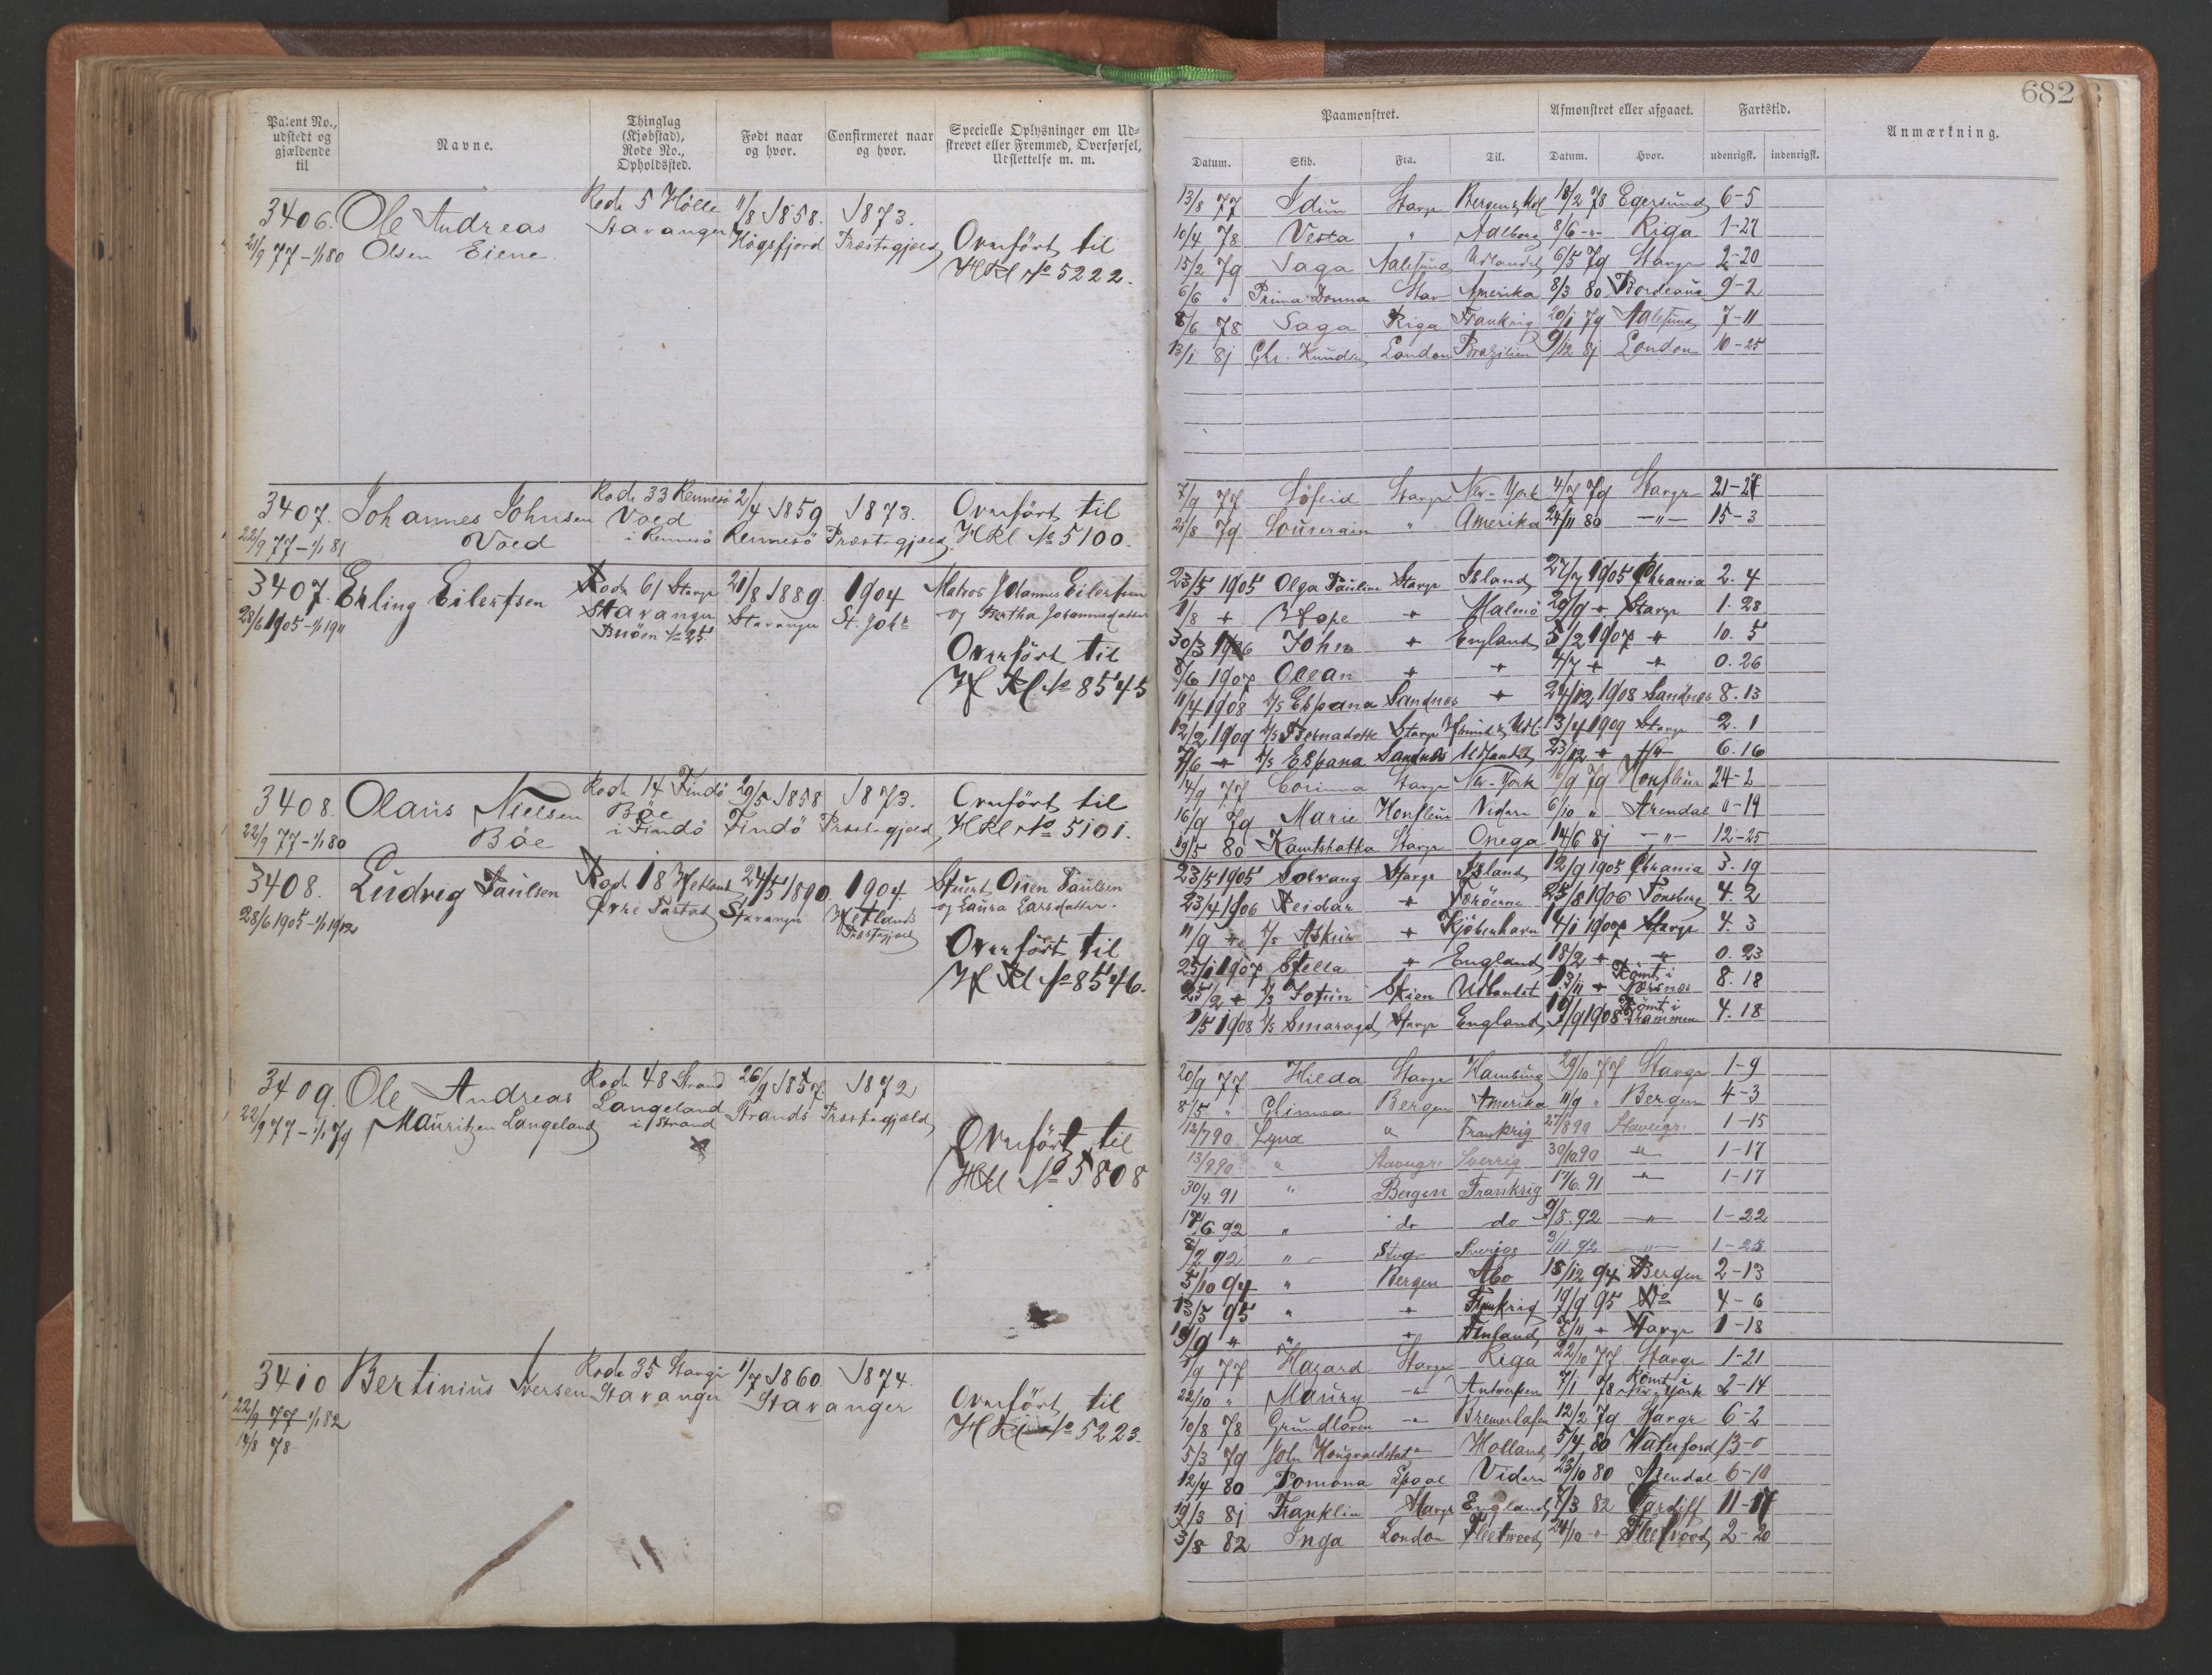 682
Patent No., udstedt og gjældende til
Navne.
Thinglag (Kjøbstad), Rode No., Opholdssted.
Født naar og hvor.
Confirmeret naar og hvor.
Specielle Oplysninger om Udskrevet eller Fremmed, Overførsel, Udslettelse m. m.
Paamønstret.
Afmønstret eller afgaaet.
Fartstid.
Anmærkning.
Datum. Skib. Fra. Til. Datum. Hvor. udenrigsk. indenrigsk.
3406. Ole Andreas Rode 5 Hölle 11/8 1858. 1873.
21/9 77 - 1/1 80 Olsen Eiene Stavanger Högsfjord Præstegjæld Overfört til
HRl No 5222.
13/8 77 Idun Stavgr Bergen & Udl 18/2 78 Egersund 6-5
10/4 78 Vesta " Aalborg 8/6 -"- Riga 1-27
15/2 79 Saga Aalesund Udlandet 6/5 79 Stavgr 2-20
6/6 " Prima Donna Stav Amerika 8/3 80 Bordeaux 9-2
8/6 78 Saga Riga Frankrig 20/1 79 Aalesund 7-11
13/1 81 Chr. Knudsen London Brazilien 9/12 81 London 10-25
3407. Johannes Johnsen Rode 33 Rennesö 2/4 1859 1873. Overfört til
22/9 77 - 1/1 81 Voed Voed i Rennesö Rennesö Præstegjæld HRl No 5100.
7/9 77 Söfeid Stavgr New-York 4/7 79 Stavgr 21-27
21/8 79 Souverain " Amerika 24/11 80 -"- 15-3
3407. Erling Eilertsen Rode 61 Stavgr 21/8 1889. 1904 Matros Johannes Eilertsen
28/6 1905 - 1/1 1911 Stavanger Stavanger St. Joh. og Bertha Johannesdatter
Overfört til
H Rl No 8545
23/5 1905 Olga Pauline Stavgr Island 27/7 1905 Chrania 2. 4
1/8 + Hope + Malmö 28/9 + Stavgr 1. 28
30/3 1906 John + England 5/2 1907 + 10. 5
8/6 1907 Ocean + + 4/7 + + 0. 26
11/4 1908 D/s Espana Sandnes + 24/12 1908 Sandnes 8. 13
12/2 1909 D/s Bernadotte Stavgr 13/4 1909 Stavgr 2. 1
7/6 + D/s Espana Sandnes Udlandet 23/12 + 6. 16
3408. Olaus Nielsen Rode 14 Findö 29/5 1858 1873. Overfört til
22/9 77 - 1/1 80 Böe Böe i Findö Findö Præstegjæld HRl No 5101.
14/9 77 Corinna Stavgr New-York 16/9 79 Honfleur 24-2
16/9 79 Marie Honfleur Vidare 6/10 " Arendal 0-19
19/5 80 Kamtshatka Stavgr Onega 14/6 81 -"- 12-25
3408. Ludvig Paulsen Rode 18 Hetland 24/5 1890. 1904.
28/6 1905 - 1/1 1912 Övre Tastad Stavanger Hetlands Præstegjæld og Laura Larsdatter.
Overfört til
H Rl No 8546.
23/5 1905 Solvang Stavgr Island 12/9 1905 Chrania 3. 19
23/4 1906 Reidar + Færöerne 25/8 1906 Tönsberg 4. 2
11/9 + D/s Askur + Kjöbenhavn 14/1 1907 Stavgr 4. 3
25/1 1907 Stella + England 18/2 + + 0. 23
25/2 + D/s Jotun Skien Udlandet 13/11 + Römt i Nærsnes 8. 18
1/5 1908 D/s Smaragd Stavgr England 19/9 1908 Römt i Drammen 4. 18
3409. Ole Andreas Rode 48 Strand 26/9 1857. 1872
22/9 77 - 1/1 79 Mauritzen Langeland Langeland i Strand Strands Præstegjæld Overfört til
HRl No 5808
20/9 77 Hilda Stavgr Hamburg 29/10 77 Stavgr 1-9
8/5 " Bergen Amerika 11/9 " Bergen 4-3
12/7 90 Lyna " Frankrig 27/8 90 Stavgr. 1-15
13/9 90 " Stavgr. Sverrig 30/10 90 " 1-17
30/4. 91 " Bergen Frankrig 17/6. 91 " 1-17
17/6 92 " do do 9/8. 92 -"- 1-22
8/9 92 " Stvgr Sverige 3/11 92 -"- 1-25
5/10 94 " Bergen Abo 18/12 94 Bergen 2-13
13/5 95 " + Frankrig 19/9 95 Do 4-6
19/9 " " + Finland 7/11 + Stavgr 1-18
3410 Bertinius Iversen Rode 35 Stavgr 1/7 1860. 1874.
22/9 77 - 1/1 82 Stavanger Stavanger Overfört til
14/8 78 HRl No 5223.
5/9 77 Hazard Stavgr Riga 22/10 77 Stavgr 1-21
22/10 " Maury -"- Antwerpen 7/1 78 Römt i New-York 2-14
10/8 78 Grundloven -"- Bremerhafen 12/2 79 Stavgr 6-2
5/3 79 John Holland 5/4 80 Waterford 13-0
12/4 80 Pomona Vidare 23/10 80 Arendal 6-10
19/3 81 Franklin Stavgr England 7/3 82 Cardiff 11-17
3/8 82 Inga London Fleetwood 24/10 -"- Fleetwood 2-20